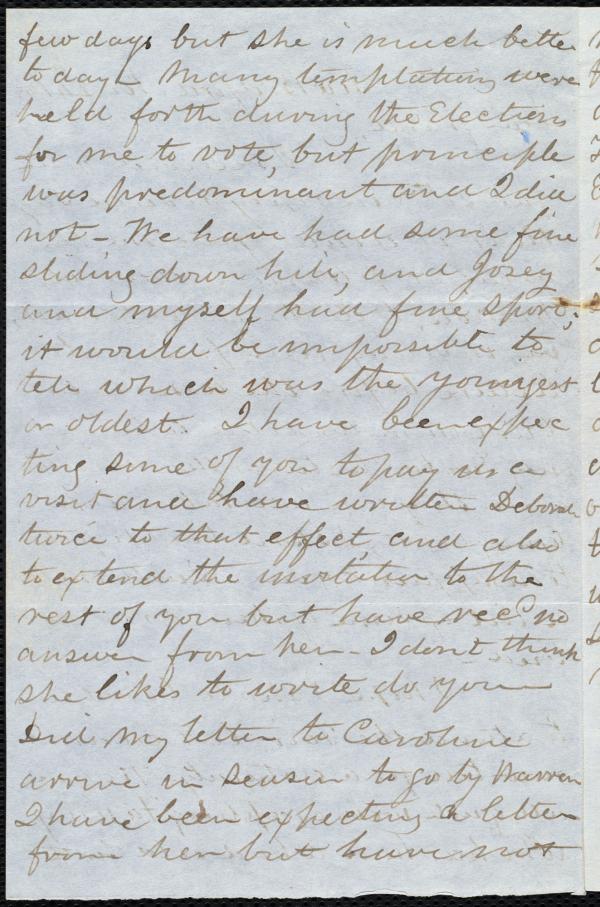 few days but she is much better
to day - Many temptations were
held forth during the Elections
for me to vote, but principle
was predominant and I did
not - We have had some fine
sliding down hill, and Josey
and myself had fine sport;
it would be impossible to
tell which was the youngest
or oldest. I have been expec
ting some of you to pay us a
visit and have written Deborah
twice to that effect, and also
to extend the invitation to the
rest of you but have recd no
answer from her - I dont think
she likes to write do you
Did my letter to Caroline
arrive in season to go by Warren
I have been expecting a letter
from her but have not